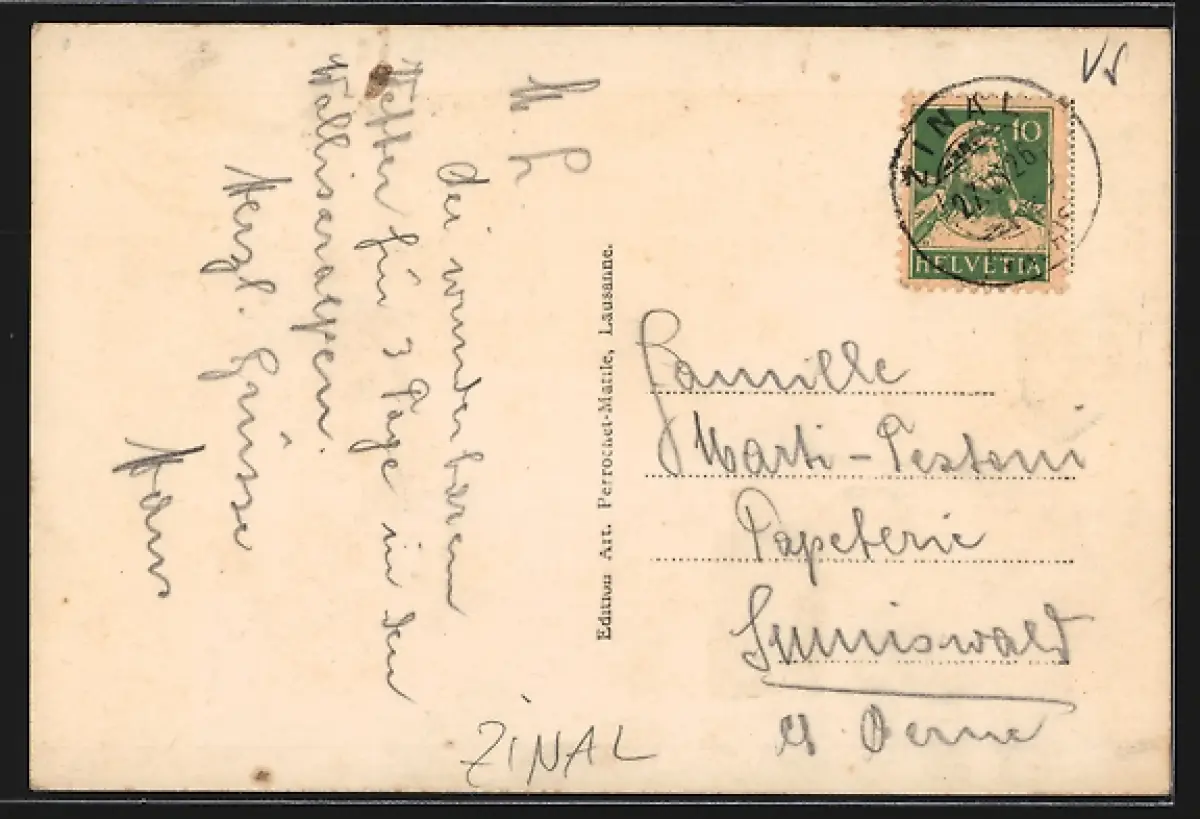 M L
bei wunderbarem
Wetter für 3 Tage in den
Wallisaralpen.
Herzl. Grüsse
Hans
Edition Art. Perrochet-Matile, Lausanne.
VS
ZINAL
26
10
HELVETIA
Famille
Marti-Pestoni
Papeterie
Sumiswald
Berne
ZINAL